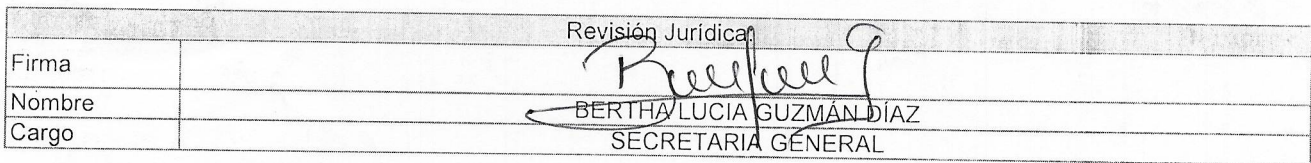 Revisión Jurídica
Firma
Nombre BERTHA LUCIA GUZMÁN DÍAZ
Cargo SECRETARIA GENERAL